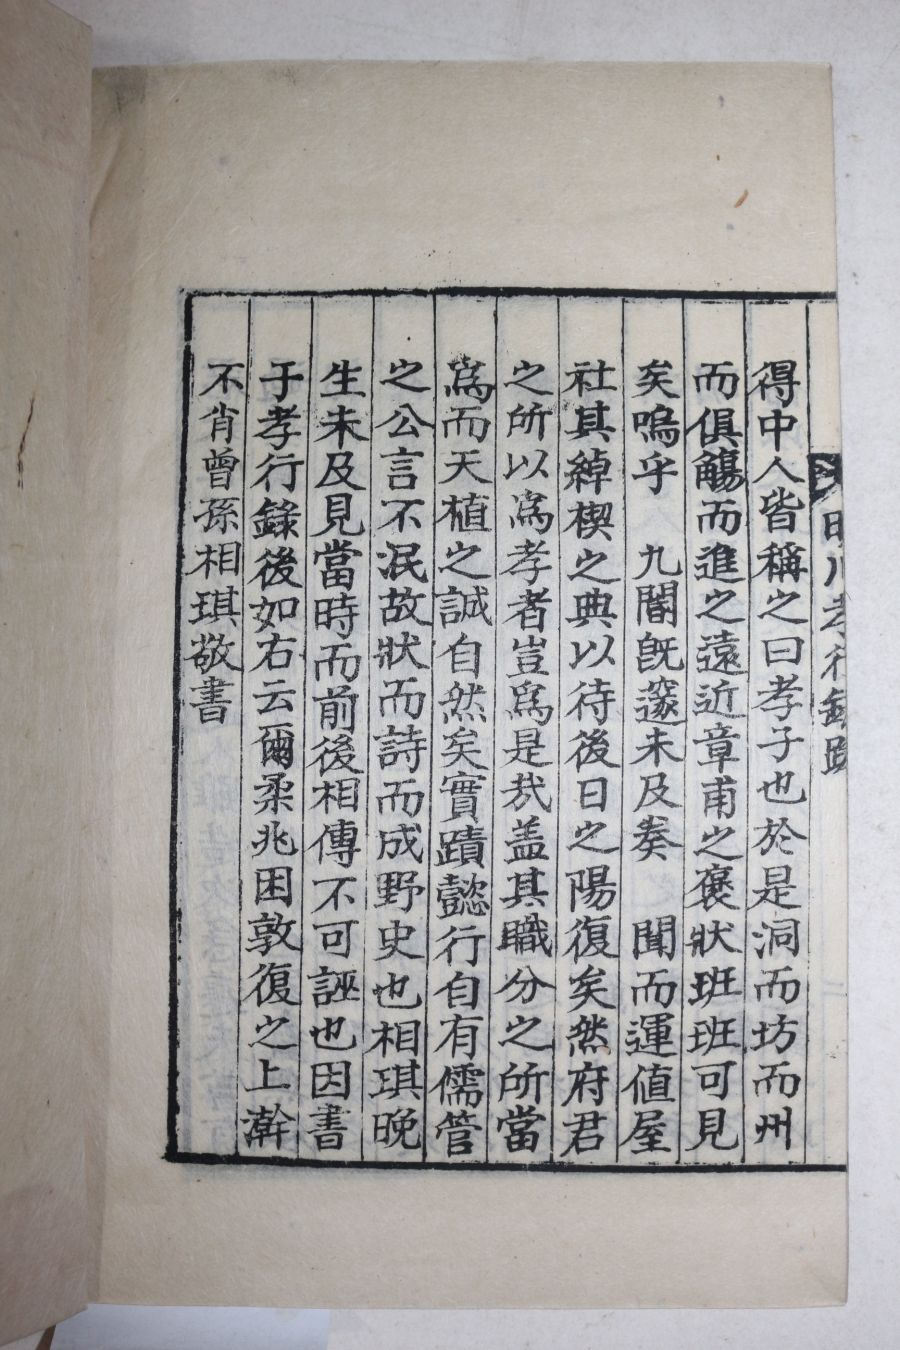 川孝行錄跋
得中人皆稱之曰孝子也於是洞而坊而州
而俱觴而進之遠近章甫之褒狀班班可見
矣嗚乎 九閽旣邃未及奏 聞而運値屋
社其綽楔之典以待後日之陽復矣然府君
之所以爲孝者豈爲是㢤盖其職分之所當
爲而天植之誠自然矣實蹟懿行自有儒管
之公言不泯故狀而詩而成野史也相琪晚
生未及見當時而前後相傳不可誣也因書
于孝行錄後如右云爾柔兆困敦復之上澣
不肖曾孫相琪敬書